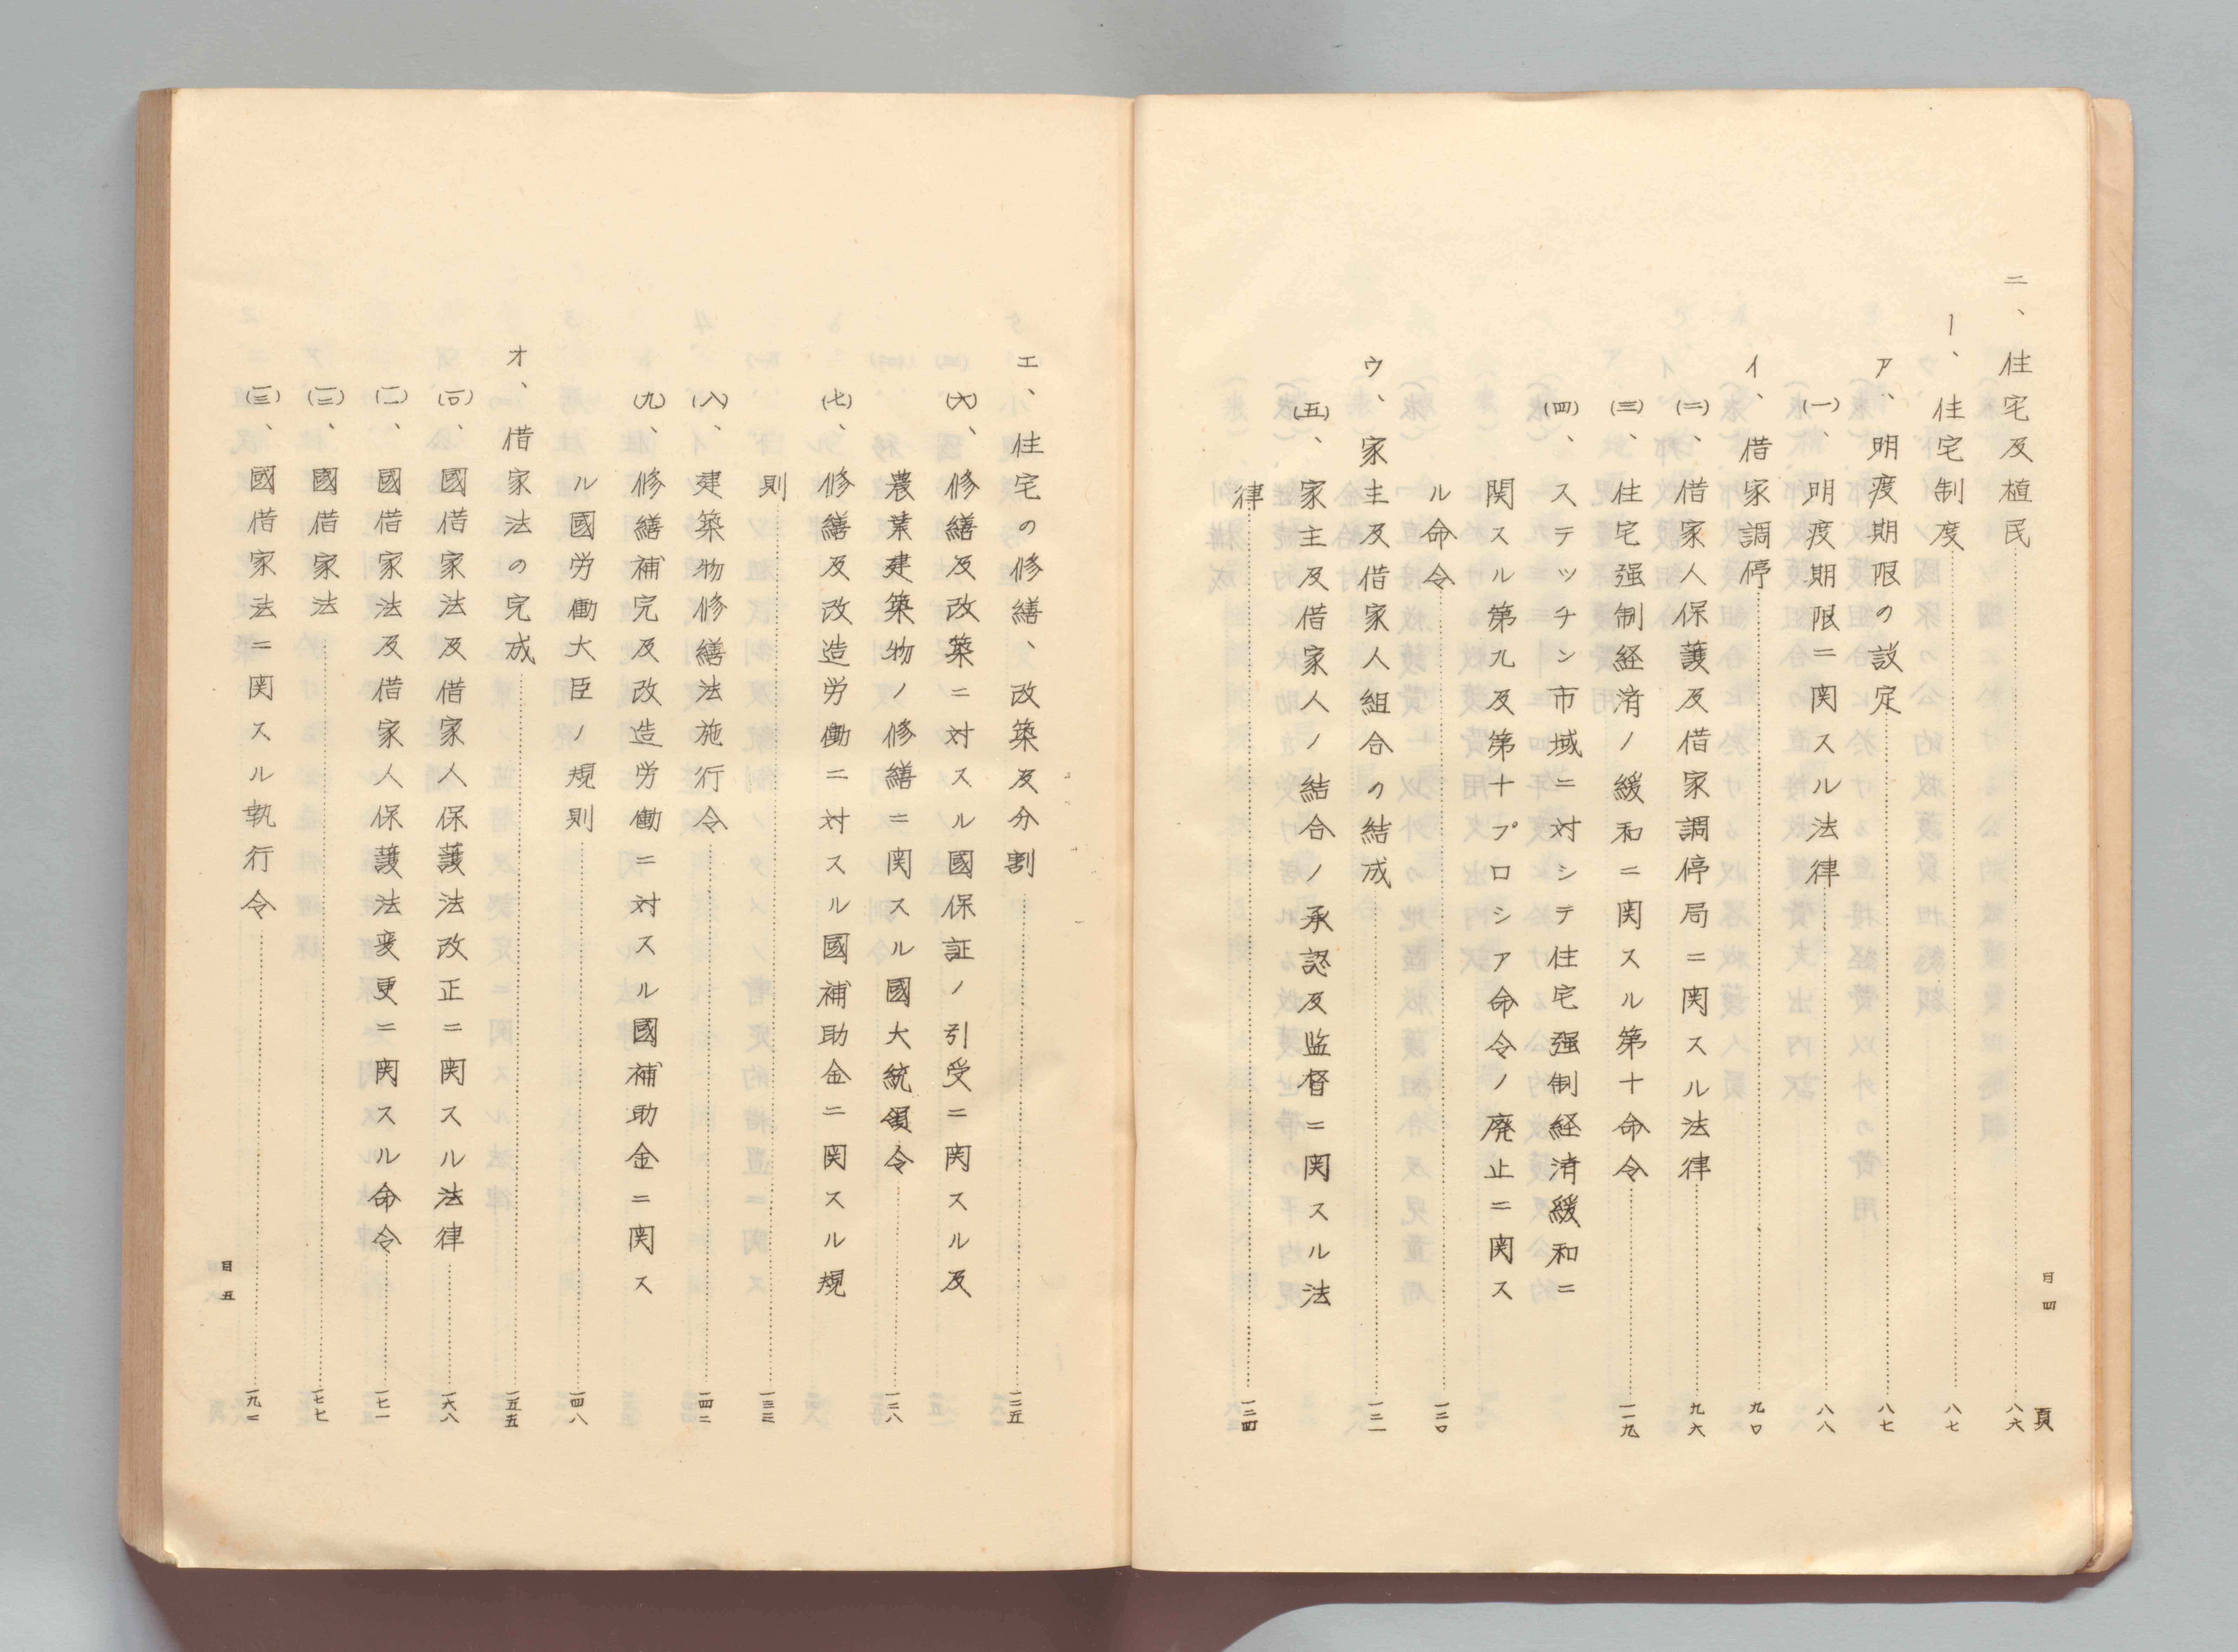 目四
頁
二、住宅及植民……八六
1、住宅制度……八七
ア、明渡期限の設定……八七
(一)、明渡期限ニ関スル法律……八八
イ、借家調停……九〇
(二)、借家人保護及借家調停局ニ関スル法律……九六
(三)、住宅强制経済ノ緩和ニ関スル第十命令……一一九
(四)、ステッチン市域ニ対シテ住宅强制経済緩和ニ
関スル第九及第十プロシア命令ノ廃止ニ関ス
ル命令……一二〇
ウ、家主及借家人組合の結成……一二一
(五)、家主及借家人ノ結合ノ承認及監督ニ関スル法
律……一二四
エ、住宅の修繕、改築及分割……一二五
(六)、修繕及改築ニ対スル國保証ノ引受ニ関スル及
農業建築物ノ修繕ニ関スル國大統領令……一二八
(七)、修繕及改造労働ニ対スル國補助金ニ関スル規
則……一三三
(八)、建築物修繕法施行令……一四二
(九)、修繕補完及改造労働ニ対スル國補助金ニ関ス
ル國労働大臣ノ規則……一四八
オ、借家法の完成……一五五
(一〇)、國借家法及借家人保護法改正ニ関スル法律……一六八
(一一)、國借家法及借家人保護法変更ニ関スル命令……一七一
(一二)、國借家法……一七七
(一三)、國借家法ニ関スル執行令……一九二
目五